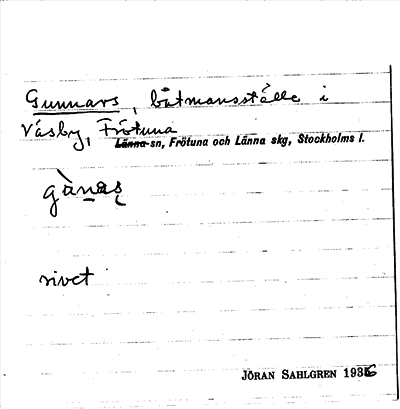 Gunnars, båtmansställe i
Väsby, Frötuna
Länna-sn, Frötuna och Länna skg, Stockholms l.
gànas
rivet
JÖRAN SAHLGREN 1936